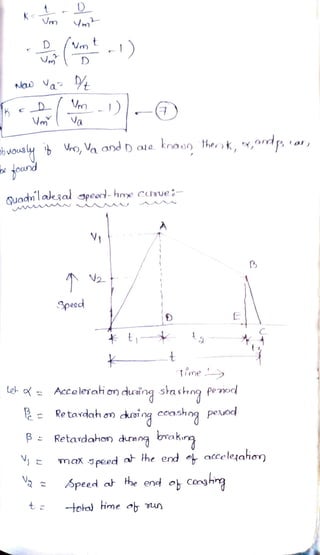 K = 1/Vm - D/Vm²
= D/Vm² (Vm t/D - 1)
Now Va = D/t
K = D/Vm² (Vm/Va - 1) — ⑦
bviously if Vm, Va and D are known then k, α, and β can
be found
Quadrilateral speed-time curve:-
A
V₁
B
V₂
Speed
D
E
C
t₁
t₂
t₃
t
Time
Let α = Acceleration during starting period
βc = Retardation during coasting period
β = Retardation during braking
V₁ = max speed at the end of acceleration
V₂ = speed at the end of coasting
t = total time of run